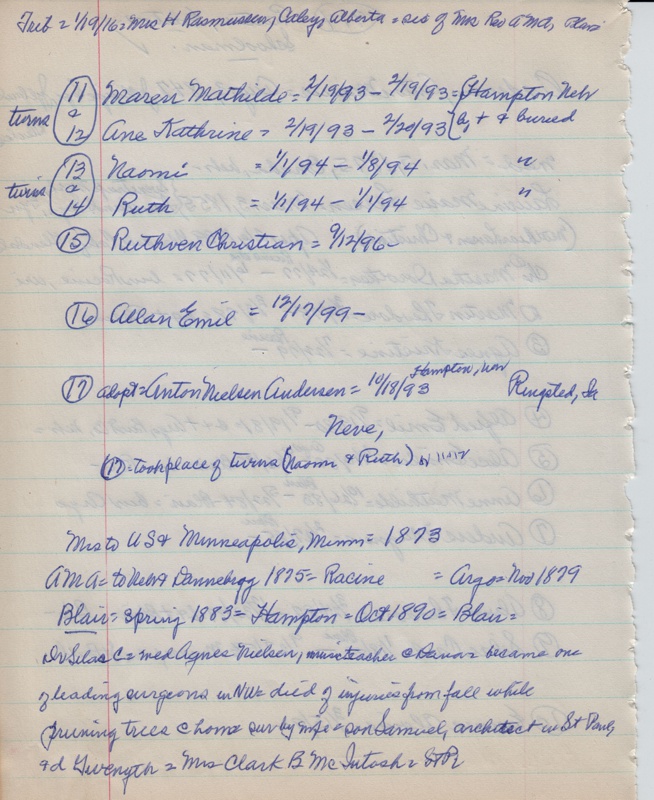 Trib = 1/19/16 = Mrs H Rasmussen, Caley, Alberta = sis of Mrs Rev A M A, Blair
turns (11 Maren Mathilde = 2/19/93 - 2/19/93 = (Hampton Nebr
& 12) Ane Kathrine = 2/19/93 - 2/20/93 ( b, + & buried
twins (13 Naomi = 1/1/94 - 1/8/94 "
& 14) Ruth = 1/1/94 - 1/1/94 "
(15) Ruthven Christian = 9/12/96 -
(16) Allan Emil = 12/17/99 -
(17) adopt = Anton Nielsen Andersen = 10/18/93 Hampton, Ringsted, Ia
Neve,
(17) = took place of turns (Naomi & Ruth) or 11 + 12
Mrs to US & Minneapolis, Minn = 1873
A M A = to Nebr & Dannebrog 1875 = Racine = Argo = Nov 1879
Blair = Spring 1883 = Hampton = Oct 1890 = Blair =
Dr Silas C = med Agnes Nielsen, music teacher c Dana = became one
of leading surgeons in NW = died of injuries from fall while
pruning trees c home = sur by wife = son Samuel, architect in St Paul,
& d = Mrs Clark B McIntosh =